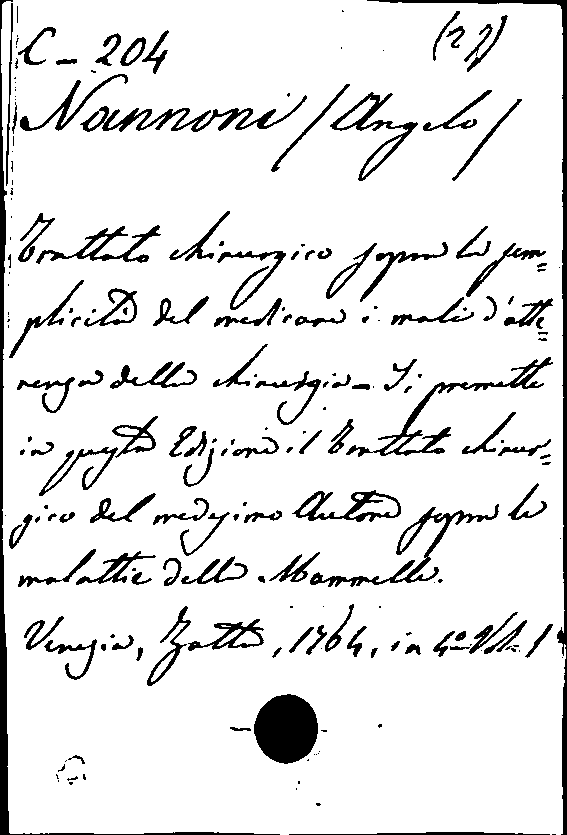 C - 204 (22)
Nannoni /Angelo/
Trattato chirurgico sopra la sem=
plicità del medicare i mali d'atte=
nenza della chirurgia - Si premette
in questa Edizione il Trattato chirur=
gico del medesimo Autore sopra le
malattie delle Mammelle.
Venezia, Zatta, 1764, in 4º Vol. 1